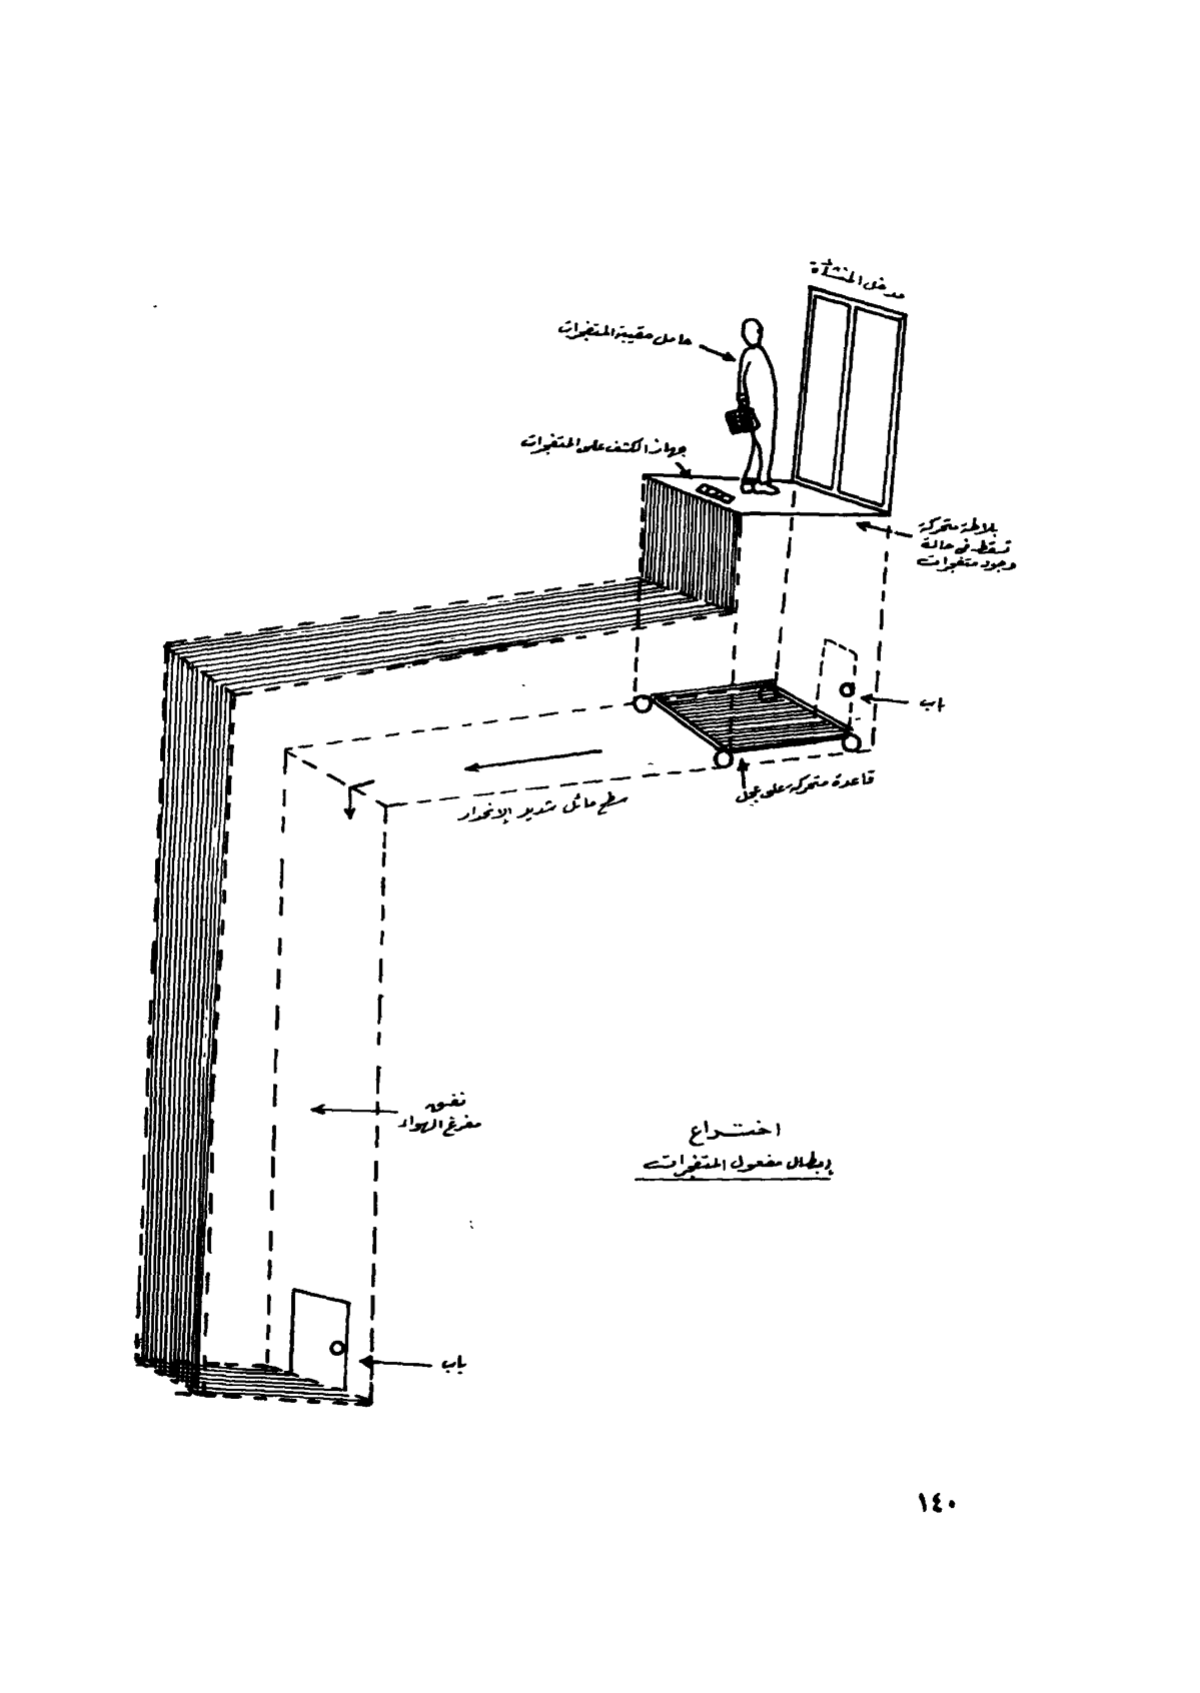 مدخل المنشأة
حامل حقيبة المتفجرات
جهاز الكشف على المتفجرات
بلاطة متحركة
تسقط فى حالة
وجود متفجرات
باب
قاعدة متحركة على عجل
سطح مائل شديد الإنحدار
نفق
مفرغ الهواء
اختراع
إبطال مفعول المتفجرات
باب
١٤٠